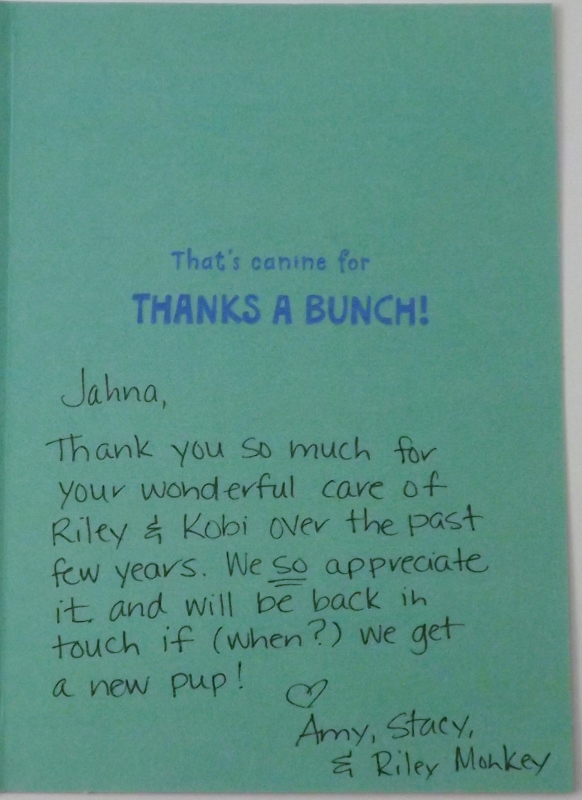 That's canine for
THANKS A BUNCH!
Jahna,
Thank you so much for
your wonderful care of
Riley & Kobi over the past
few years. We so appreciate
it and will be back in
touch if (when?) we get
a new pup!
♡
Amy, Stacy,
& Riley Monkey